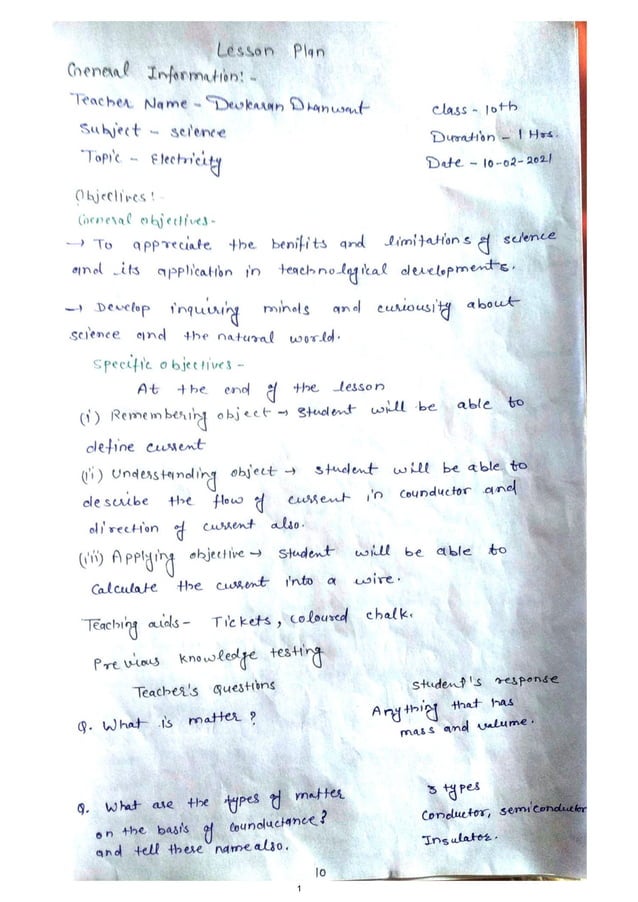 Lesson Plan
General Information:-
Teacher Name - Devkaran Dhanwart
Class - 10th
Subject - science
Duration - 1 Hrs.
Topic - Electricity
Date - 10-02-2021
Objectives:-
General objectives-
→ To appreciate the benifits and limitations of science
and its application in teachnological developments.
→ Develop inquiring minds and curiousity about
science and the natural world.
Specific objectives -
At the end of the lesson
(i) Remembering object → student will be able to
define current
(ii) Understanding object → student will be able to
describe the flow of current in counductor and
direction of current also.
(iii) Applying objective → student will be able to
calculate the current into a wire.
Teaching aids - Tickets, coloured chalk.
Previous knowledge testing
Teacher's questions
student's response
Q. What is matter?
Anything that has
mass and valume.
Q. What are the types of matter
on the basis of counductance?
and tell these name also.
3 types
Conductor, semiconductor
Insulator.
10
1